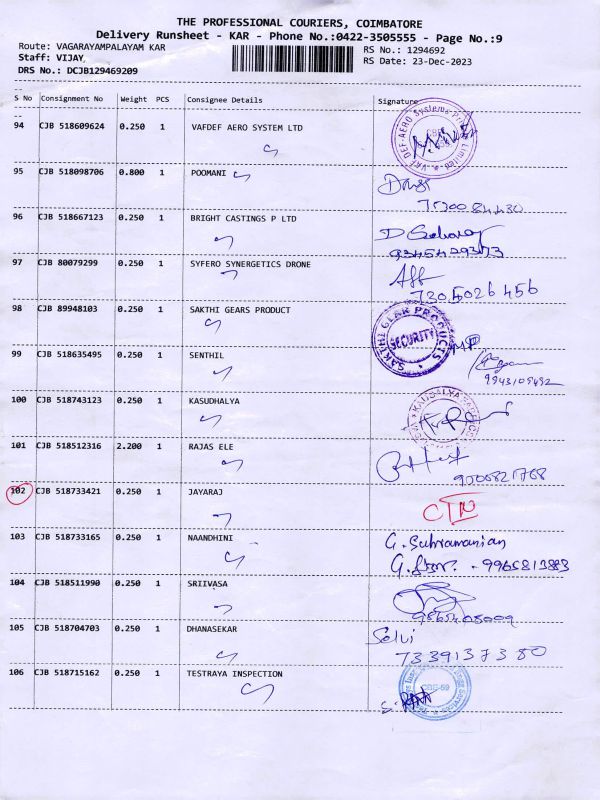 THE PROFESSIONAL COURIERS, COIMBATORE
Delivery Runsheet - KAR - Phone No.:0422-3505555 - Page No.:9
Route: VAGARAYAMPALAYAM KAR
RS No.: 1294692
Staff: VIJAY
RS Date: 23-Dec-2023
DRS No.: DCJB129469209
S No Consignment No Weight PCS Consignee Details Signature
94 CJB 518609624 0.250 1 VAFDEF AERO SYSTEM LTD
95 CJB 518098706 0.800 1 POOMANI
96 CJB 518667123 0.250 1 BRIGHT CASTINGS P LTD
97 CJB 80079299 0.250 1 SYFERO SYNERGETICS DRONE
98 CJB 89948103 0.250 1 SAKTHI GEARS PRODUCT
SAKTHI GEAR PRODUCTS
SECURITY
99 CJB 518635495 0.250 1 SENTHIL
9943109492
100 CJB 518743123 0.250 1 KASUDHALYA
101 CJB 518512316 2.200 1 RAJAS ELE
102 CJB 518733421 0.250 1 JAYARAJ
103 CJB 518733165 0.250 1 NAANDHINI
G. Subramanian
104 CJB 518511990 0.250 1 SRIIVASA
105 CJB 518704703 0.250 1 DHANASEKAR
Selvi
7339137380
106 CJB 518715162 0.250 1 TESTRAYA INSPECTION